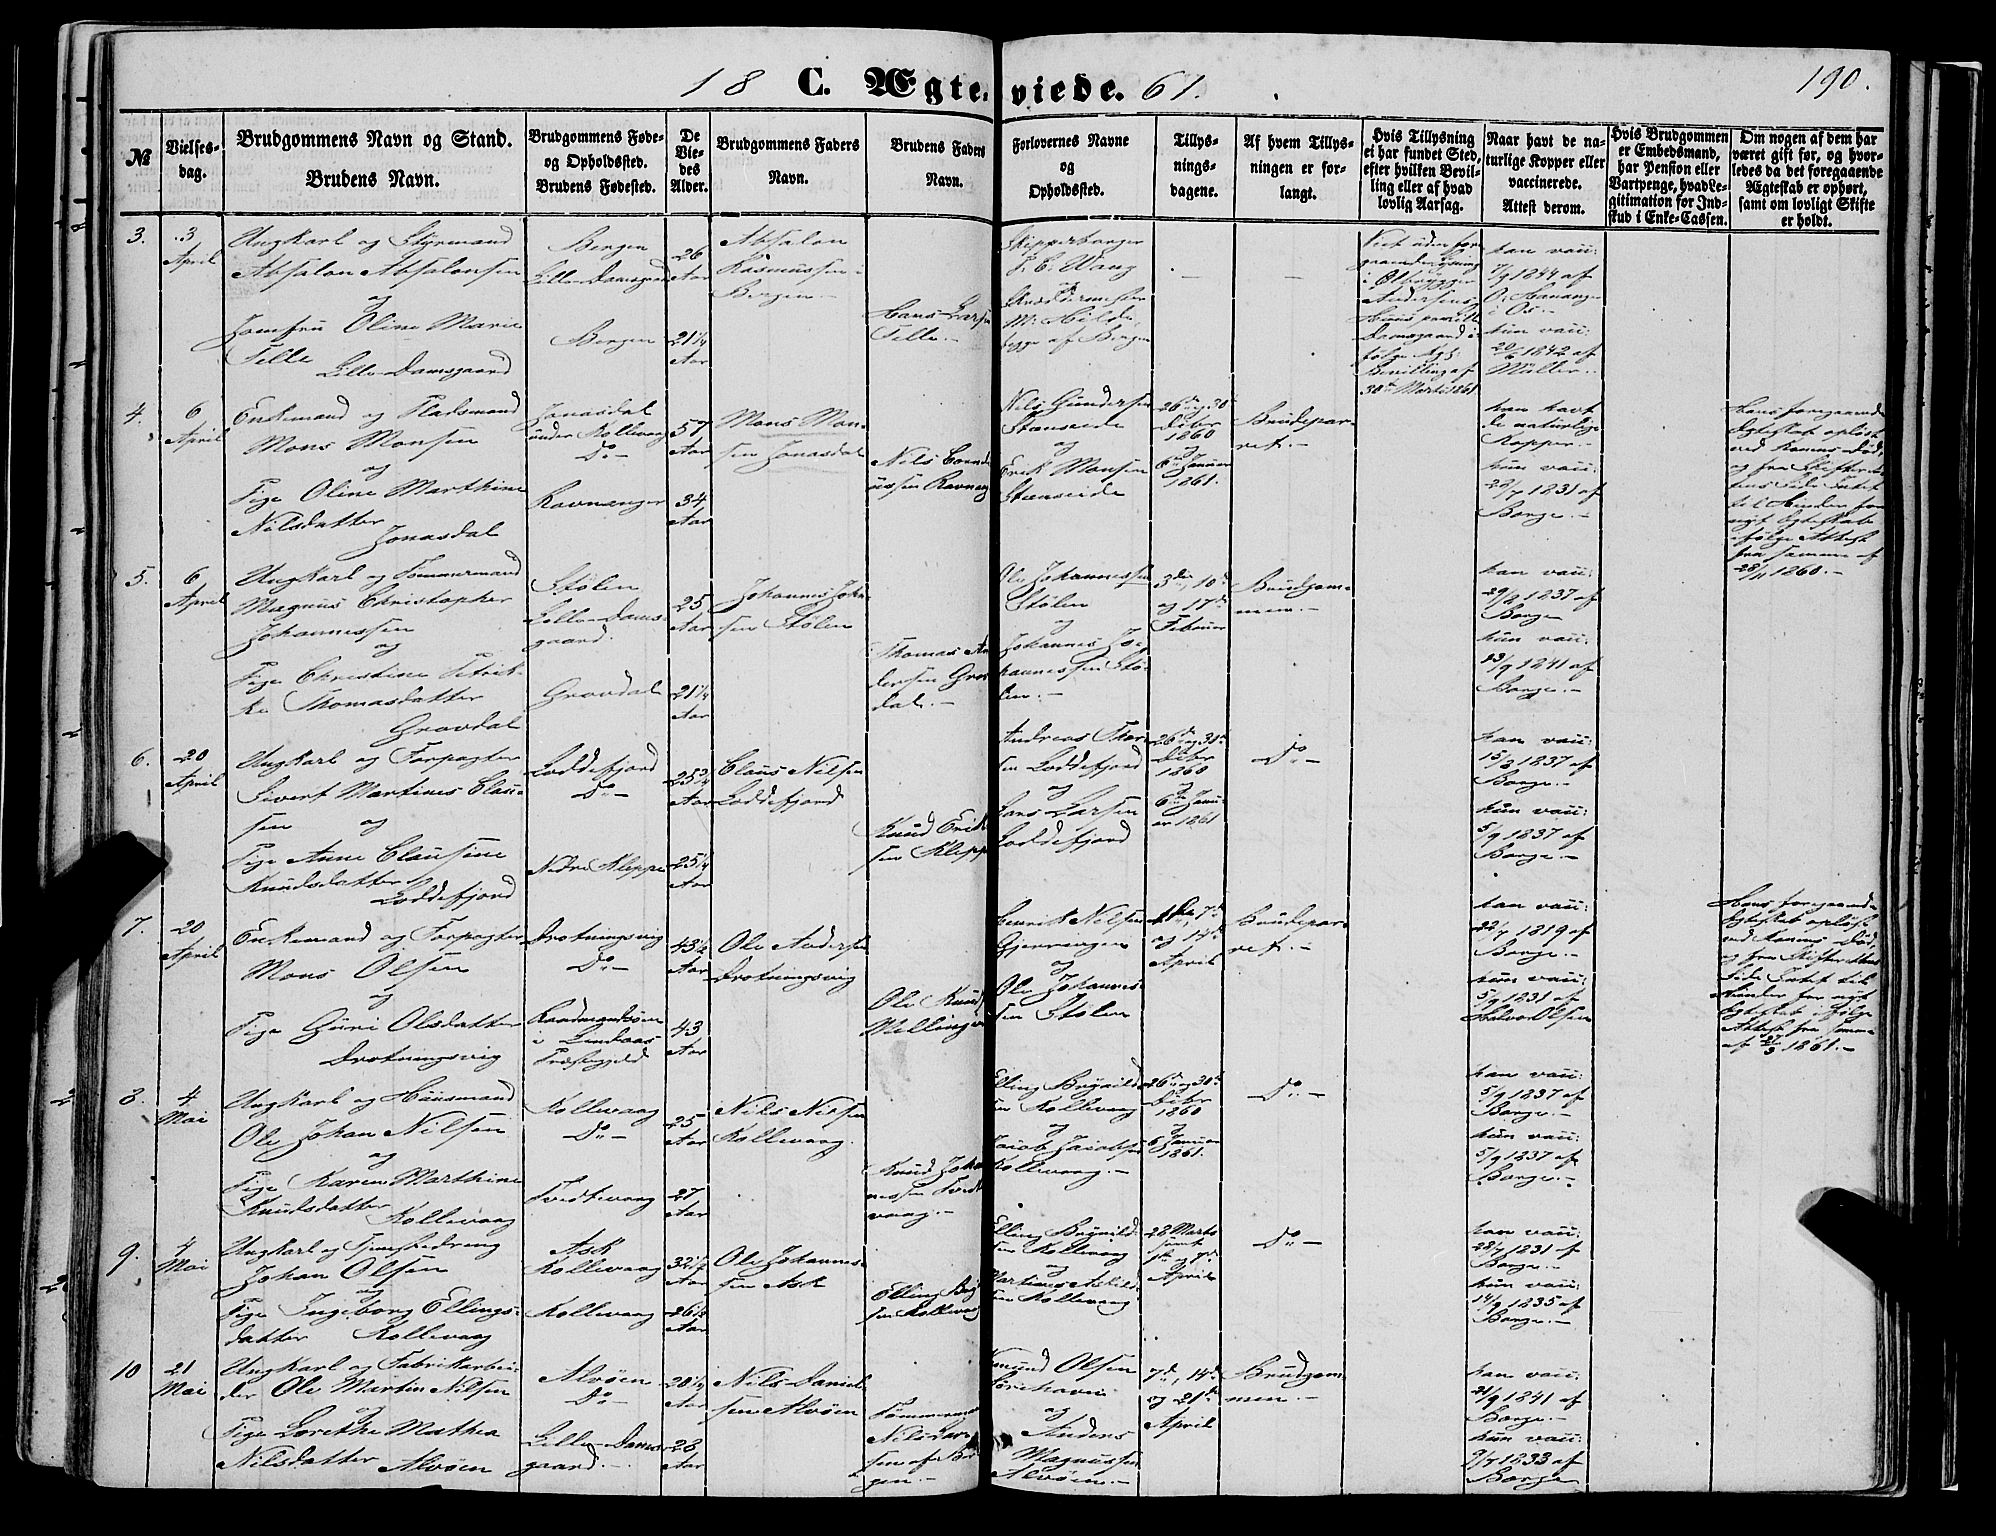 18 C. Ægteviede. 61.
190.
№
Vielses-
dag.
Brudgommens Navn og Stand.
Brudens Navn.
Brudgommens Føde-
og Opholdssted.
Brudens Fødested.
De
Vie-
des
Alder.
Brudgommens Faders
Navn.
Brudens Faders
Navn.
Forlovernes Navne
og
Opholdssted.
Tillys-
nings-
dagene.
Af hvem Tillys-
ningen er for-
langt.
Hvis Tillysning
ei har fundet Sted,
efter hvilken Bevil-
ling eller af hvad
lovlig Aarsag.
Naar havt de na-
turlige Kopper eller
vaccinerede.
Attest derom.
Hvis Brudgommen
er Embedsmand,
har Pension eller
Vartpenge, hvad Le-
gitimation for Ind-
skud i Enke-Cassen.
Om nogen af dem har
været gift før, og hvor-
ledes da det foregaaende
Ægteskab er ophørt,
samt om lovligt Skifte
er holdt.
3.
3
April
Ungkarl og Styrmand
Absalon Absalonsen
og
Jomfru Oline Marie
Telle
Lille-Damsgaard
Bergen
Lille-Damsgaard
Bergen
26
Aar
21 1/4
Aar
Absalon
Rasmussen
Bergen
Hans Larsen
Telle.
Skipperborger
J. C. Wang
og
M. Hilde,
begge af Bergen
Viet uden for-
gaaende Lysning
i
Andersens
Huus paa Lille
Damsgaard i-
følge Kgl.
Bevilling af
30te Marts 1861
han vacc:
7/9 1844 af
O. Hanange
i Os.
hun vacc:
20/6 1842 af
Müller.
4.
6
April
Enkemand og Pladsmand
Mons Monsen
og
Pige Oline Marthine
Nilsdatter
Jonasdal
Jonasdal
under Kollevaag
Do
Ravnanger
57
Aar
34
Aar
Mons Mon-
sen Jonasdal
Nils
Ravnang
Nils Gundersen
Steenseide
og
Erik Monsen
Steenseide
26de og 30te
Dcbr
1860
og
6te Januar
1861.
Brudepar-
ret.
han havt
de naturlige
Kopper.
hun vacc:
28/7 1831 af
Borge.
Hans foregaaende
Ægteskab opløst
ved Konens Død,
og fra Skifteret-
tens Side Intet
til Hinder for
nyt Ægteskab
ifølge Attest
fra samme af
28/11 1860.
5.
6
April
Ungkarl og Tømmermand
Magnus Christopher
Johannessen
og
Pige Christine Petrik-
ke Thomasdatter
Gravdal
Stølen
Lille-Dams-
gaard.
Gravdal
25
Aar
21 1/4
Aar
Johannes Johan-
sen Stølen
Thomas An-
dersen Grav-
dal.
Ole Johannessen
Stølen
og
Johannes Jo-
hannessen Stø-
len.
3die, 10de
og 17de
Februar
Brudgom-
men.
han vacc:
29/8 1837 af
Borge
hun vacc:
23/9 1841 af
Borge.
6.
20
April
Ungkarl og Forpagter
Sivert Martinus Clau-
sen og
Pige Anne Clausine
Knudsdatter
Loddefjord
Loddefjord
Do
Nedre Kleppe
25 3/4
Aar
25 1/4
Aar
Claus Nilsen
Loddefjord
Knud Erik-
sen Klepp
Andreas Thor-
sen Loddefjord
og
Lars Larsen
Loddefjord
26de og 30te
Dcbr
1860
og
6te Janu-
ar 1861
Do
han vacc:
15/8 1837 af
Borge.
hun vacc:
5/9 1837 af
Borge.
7.
20
April
Enkemand og Forpagter
Mons Olsen
og
Pige Guri Olsdatter
Drotningsvig
Drotningsvig
Do
Raadmandsøen
i Lindaas
Præstegjeld
43 1/2
Aar
43
Aar
Ole Andersen
Drotningsvig
Ole Knuds
Mellingen
Henrik Nilsen
Gjerningen
og
Ole Johannes-
sen Stølen
1ste, 7de
og 14de
April
Brudepar-
ret.
han vacc:
22/7 1819 af
Borge.
hun vacc:
5/9 1831 af
Halvor Olsen
Hans foregaaende
Ægteskab opløst
ved Konens Død,
og fra Skifterettens
Side Intet til
Hinder for nyt
Ægteskab ifølge
Attest fra samme
af 27/3 1861.
8.
4
Mai
Ungkarl og Huusmand
Ole Johan Nilsen
og
Pige Karen Marthine
Knudsdatter
Kollevaag
Kollevaag
Do
Tveitevaag
25
Aar
27
Aar
Nils Nilsen
Kollevaag.
Knud Johan-
nessen Tveit-
vaag.
Elling Brynild-
sen Kollevaag
og
Jacob Jacobsen
Kollevaag.
26de og 30te
Dcbr
1860
og
6 Januar
1861.
Do
han vacc:
5/9 1837 af
Borge.
hun vacc:
5/9 1837 af
Borge.
9.
4
Mai
Ungkarl og Tjenestedreng
Johan Olsen
og
Pige Ingeborg Ellings-
datter Kollevaag
Ask
Kollevaag
Kollevaag
32 1/2
Aar
26 1/2
Aar
Ole Johannes-
sen Ask
Elling
sen Kollevaag
Elling Brynild-
sen Kollevaag
og
Martinus
Kollevaag
28 Marts
samt
1ste og 7de
April
Do
han vacc:
22/7 1831 af
Borge.
hun vacc:
14/9 1835 af
Borge.
10
21
Mai
Ungkarl og Fabrikarbei-
der Ole Martin Nilsen
og
Pige Lorethe Mathea
Nilsdatter Alvøen
Alvøen
Do
Lille-Dams-
gaard.
20 1/4
Aar
28
Aar
Nils Daniel-
sen Alvøen
Tømmermand
Nils Lar-
sen af Ber-
gen.
Knud Olsen
og
Anders
Magnussen
Alvøen.
7de, 14de
og 21de
April
Brudgom-
men.
han vacc:
21/9 1841 af
Borge.
hun vacc:
9/7 1833 af
Borge